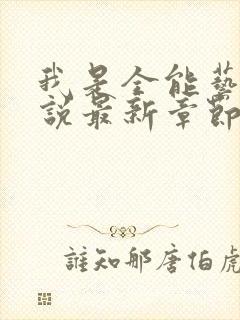 我是全能藝
說最新章節
誰知那唐伯虎